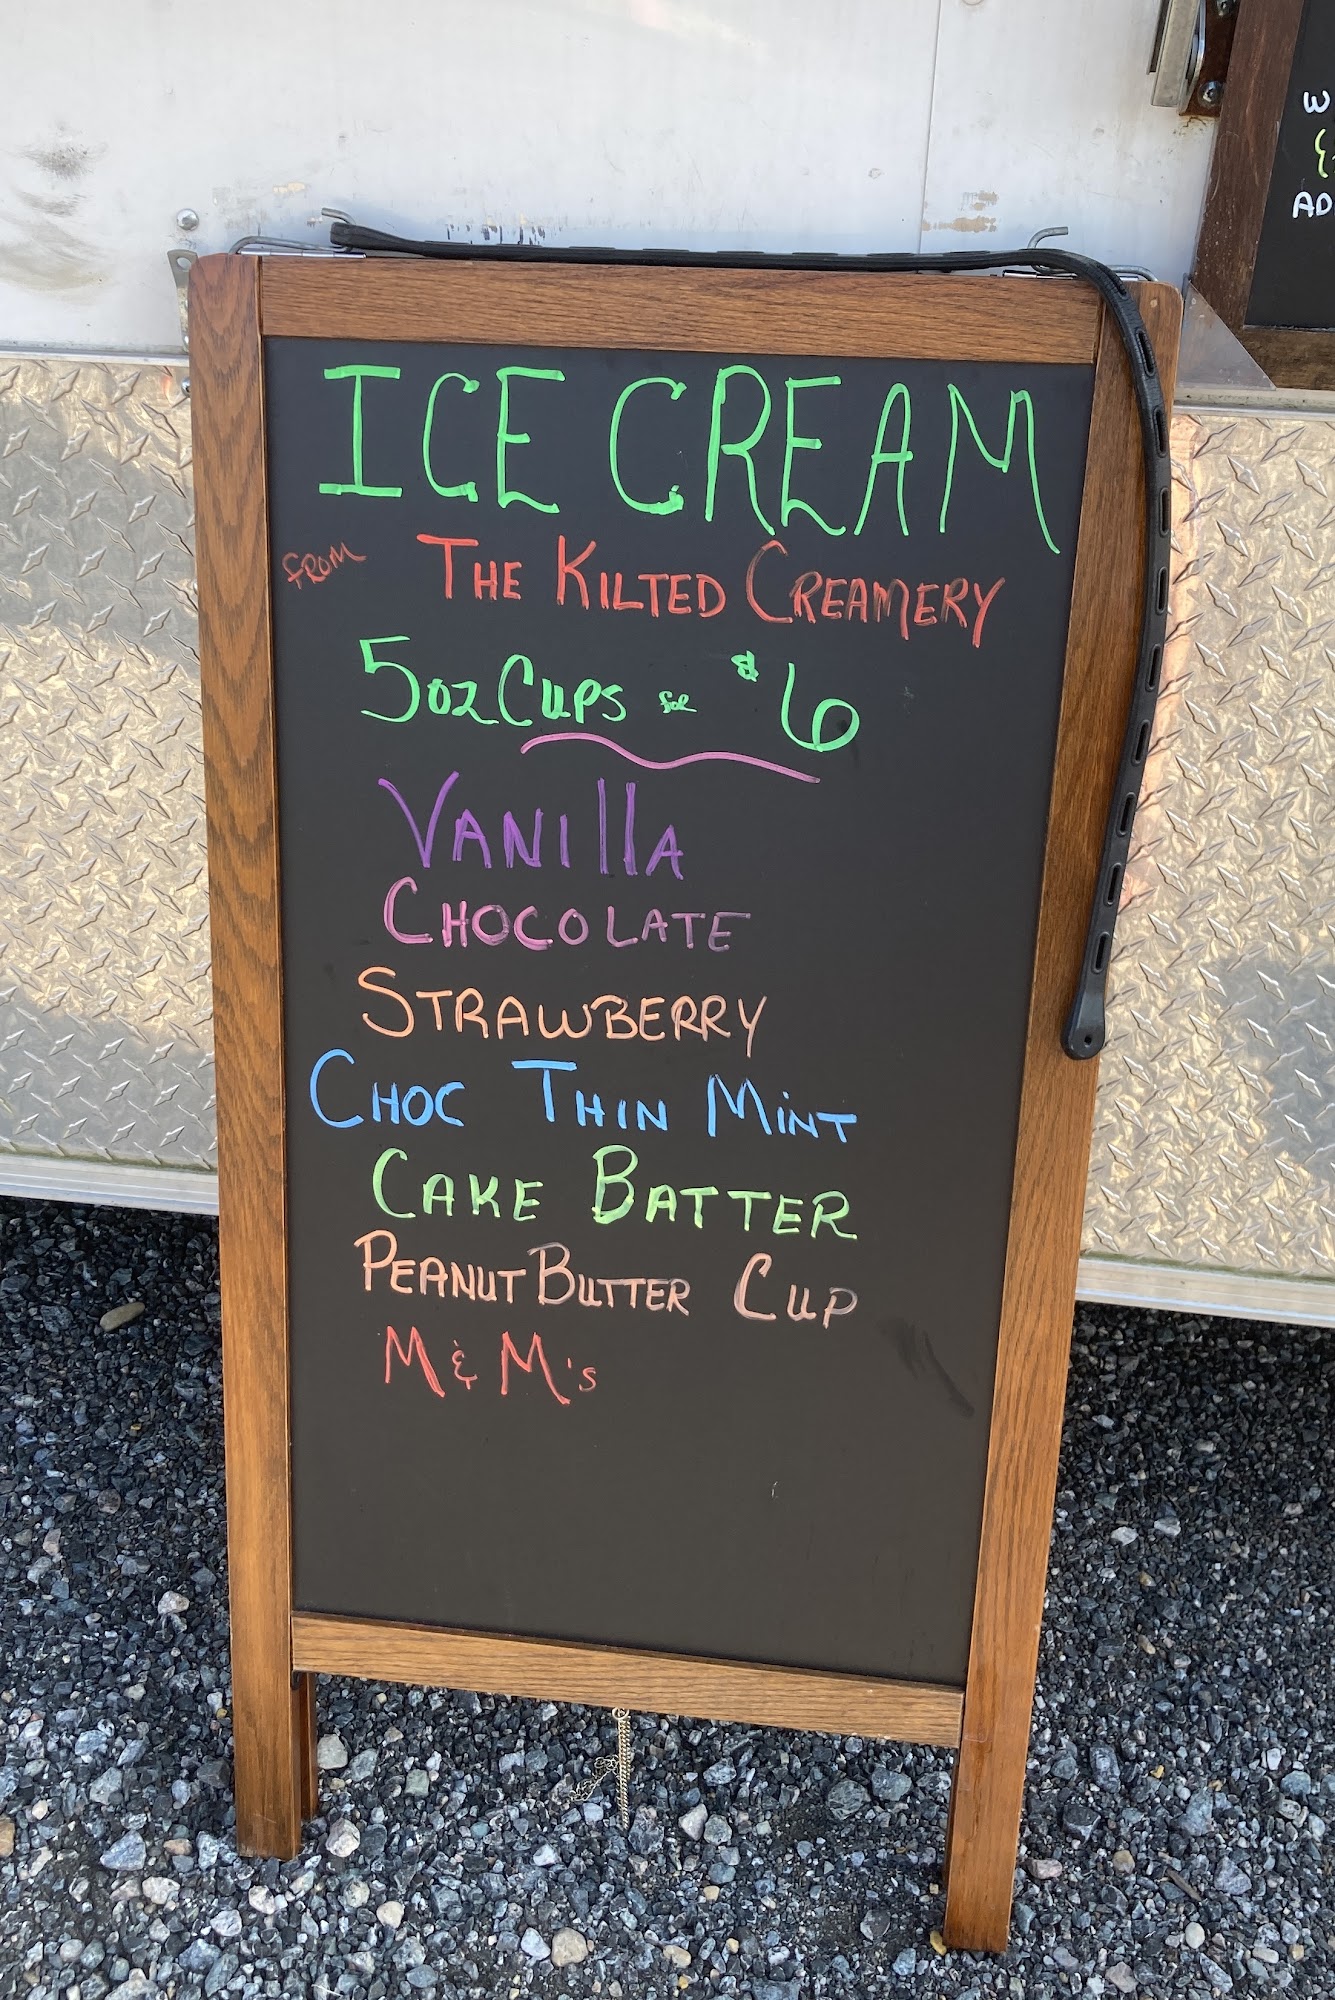 ICE CREAM
FROM THE KILTED CREAMERY
5oz CUPS FOR $6
VANIllA
CHOCOLATE
STRAWBERRY
CHOC THIN MINT
CAKE BATTER
PEANUT BUTTER CUP
M & M's
W
AD